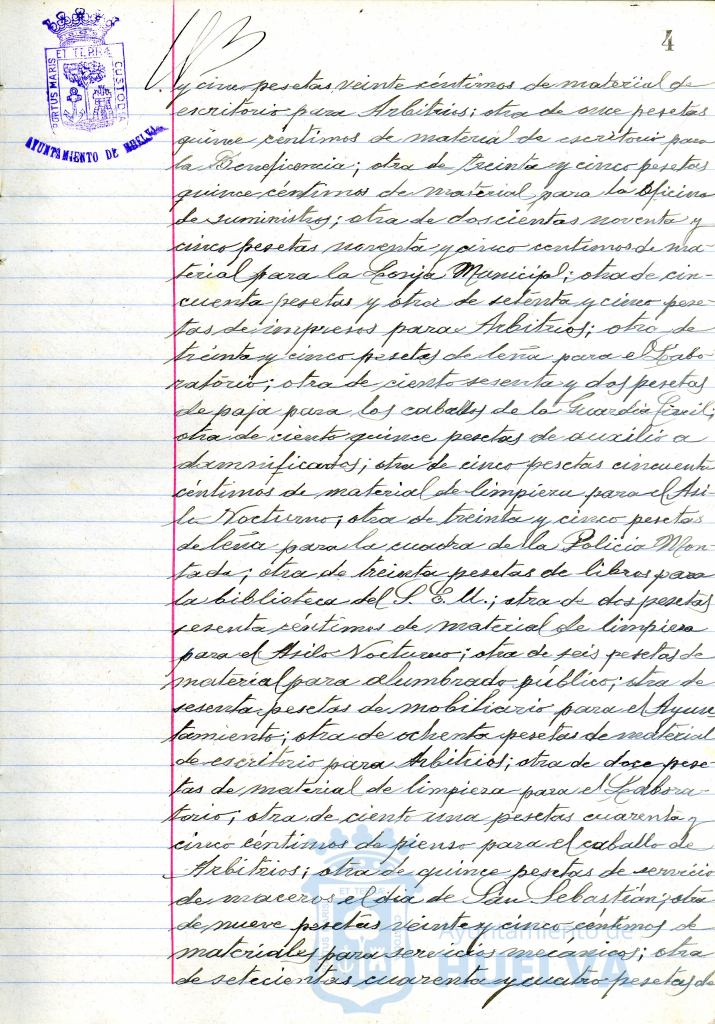 4
PORTUS MARIS ET TERRÆ CUSTODIA
AYUNTAMIENTO DE HUELVA
y cinco pesetas veinte céntimos de material de
escritorio para Arbitrios; otra de once pesetas
quince céntimos de material de escritorio para
la Beneficencia; otra de treinta y cinco pesetas
quince céntimos de material para la Oficina
de suministros; otra de doscientas noventa y
cinco pesetas noventa y cinco centimos de ma-
terial para la Lonja Municipal; otra de cin-
cuenta pesetas y otra de setenta y cinco pese-
tas de impresos para Arbitrios; otra de
treinta y cinco pesetas de leña para el Labo-
ratório; otra de ciento sesenta y dos pesetas
de paja para los caballos de la Guardia Civil;
otra de ciento quince pesetas de auxilio a
damnificados; otra de cinco pesetas cincuenta
céntimos de material de limpieza para el Asi-
lo Nocturno; otra de treinta y cinco pesetas
de leña para la cuadra de la Policia Mon-
tada; otra de treinta pesetas de libros para
la biblioteca del S. E. U.; otra de dos pesetas
sesenta céntimos de material de limpieza
para el Asilo Nocturno; otra de seis pesetas de
material para alumbrado público; otra de
sesenta pesetas de mobiliario para el Ayun-
tamiento; otra de ochenta pesetas de material
de escritorio para Arbitrios; otra de doce pese-
tas de material de limpieza para el Labora-
torio; otra de ciento una pesetas cuarenta y
cinco céntimos de pienso para el caballo de
Arbitrios; otra de quince pesetas de servicio
de maceros el dia de San Sebastián; otra
de nueve pesetas veinte y cinco céntimos de
materiales para servicios mecánicos; otra
de setecientas cuarenta y cuatro pesetas de
PORTUS MARIS ET TERRÆ CUSTODIA
Ayuntamiento de
HUELVA